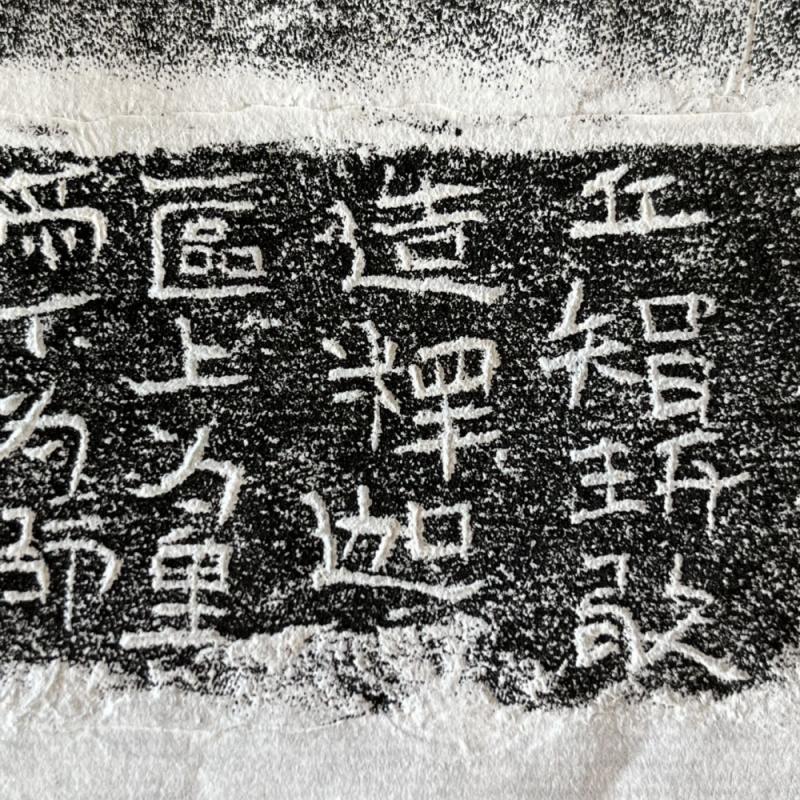 丘智珃敬
造釋迦
區上為皇
下為師